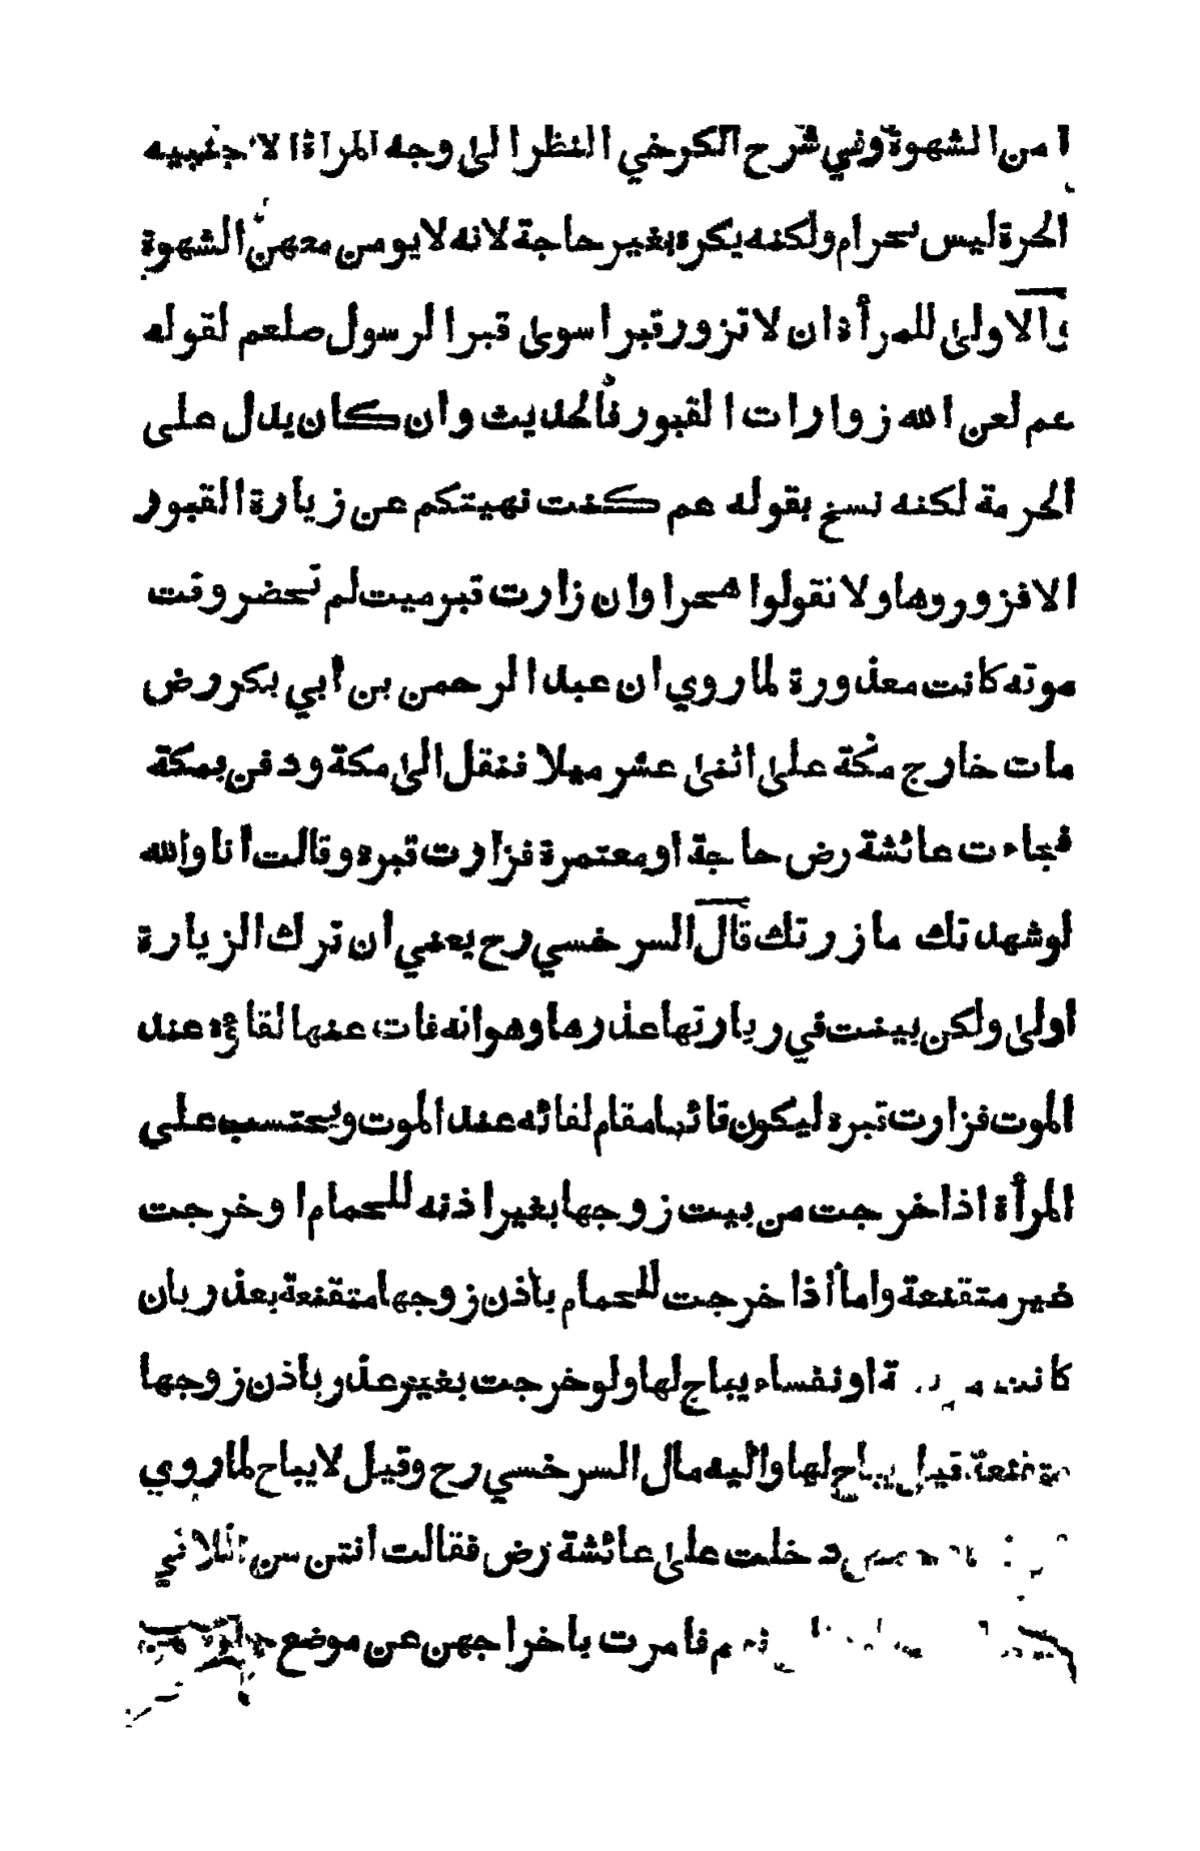 ا من الشهوة وفي شرح الكرخي النظر الى وجه المرأة الاجنبيه
الحرة ليس بحرام ولكنه يكره بغير حاجة لانه لا يومن معهن الشهوة
والاولى للمرأة ان لا تزور قبرا سوى قبر الرسول صلعم لقوله
عم لعن الله زوارات القبور فالحديث وان كان يدل على
الحرمة لكنه نسخ بقوله عم كنت نهيتكم عن زيارة القبور
الا فزوروها ولا تقولوا هجرا وان زارت قبر ميت لم تحضر وقت
موته كانت معذورة لما روي ان عبد الرحمن بن أبي بكر رض
مات خارج مكة على اثنى عشر ميلا فنقل الى مكة ودفن بمكة
فجاءت عائشة رض حاجة او معتمرة فزارت قبره وقالت أنا والله
لو شهدتك ما زرتك قال السرخسي رح يعني ان ترك الزيارة
اولى ولكن بينت في زيارتها عذرها وهو انه فات عنها لقاؤه عند
الموت فزارت قبره ليكون قائما مقام لقائه عند الموت ويحتسب على
المرأة اذا خرجت من بيت زوجها بغير اذنه للحمام او خرجت
غير متقنعة واما أذا خرجت للحمام بأذن زوجها متقنعة بعذر بان
كانت او نفساء يباح لها ولو خرجت بغير عذر باذن زوجها
متقنعة قيل يباح لها واليه مال السرخسي رح وقيل لا يباح لما روي
دخلت على عائشة رض فقالت انتن من اللاتي
فامرت باخراجهن عن موضع